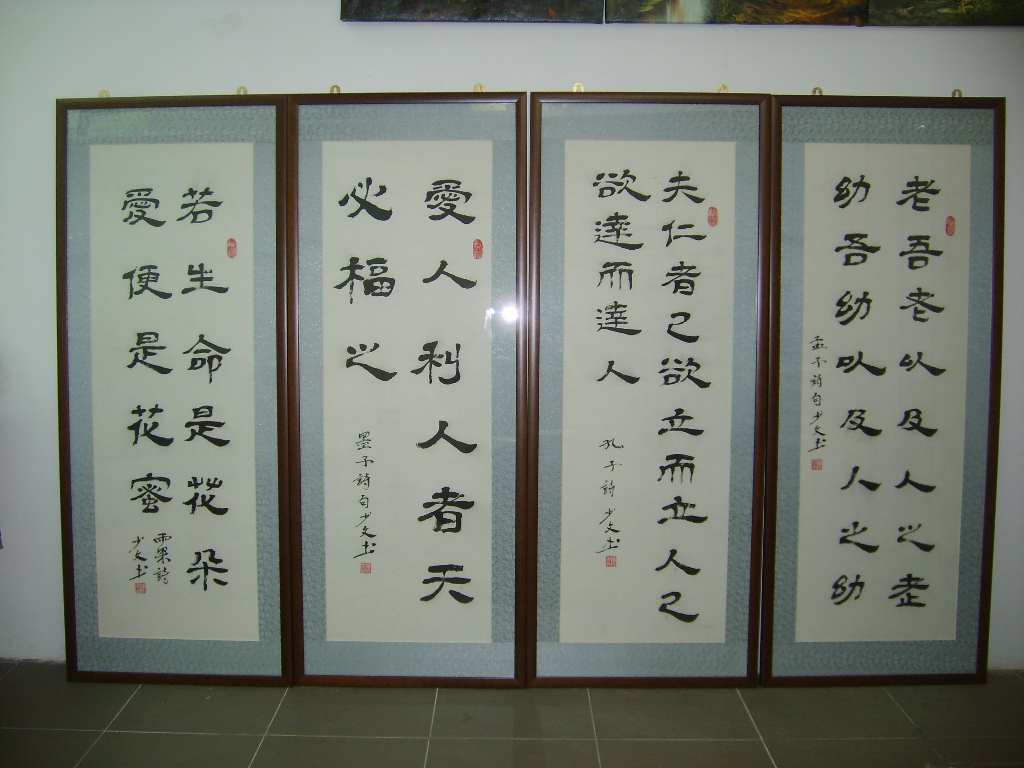 老吾老以及人之老
幼吾幼以及人之幼
孟子詩句少文書
夫仁者己欲立而立人己
欲達而達人
孔子詩少文書
愛人利人者天
必福之
墨子詩句少文書
若生命是花朵
愛便是花蜜
雨果詩
少文书